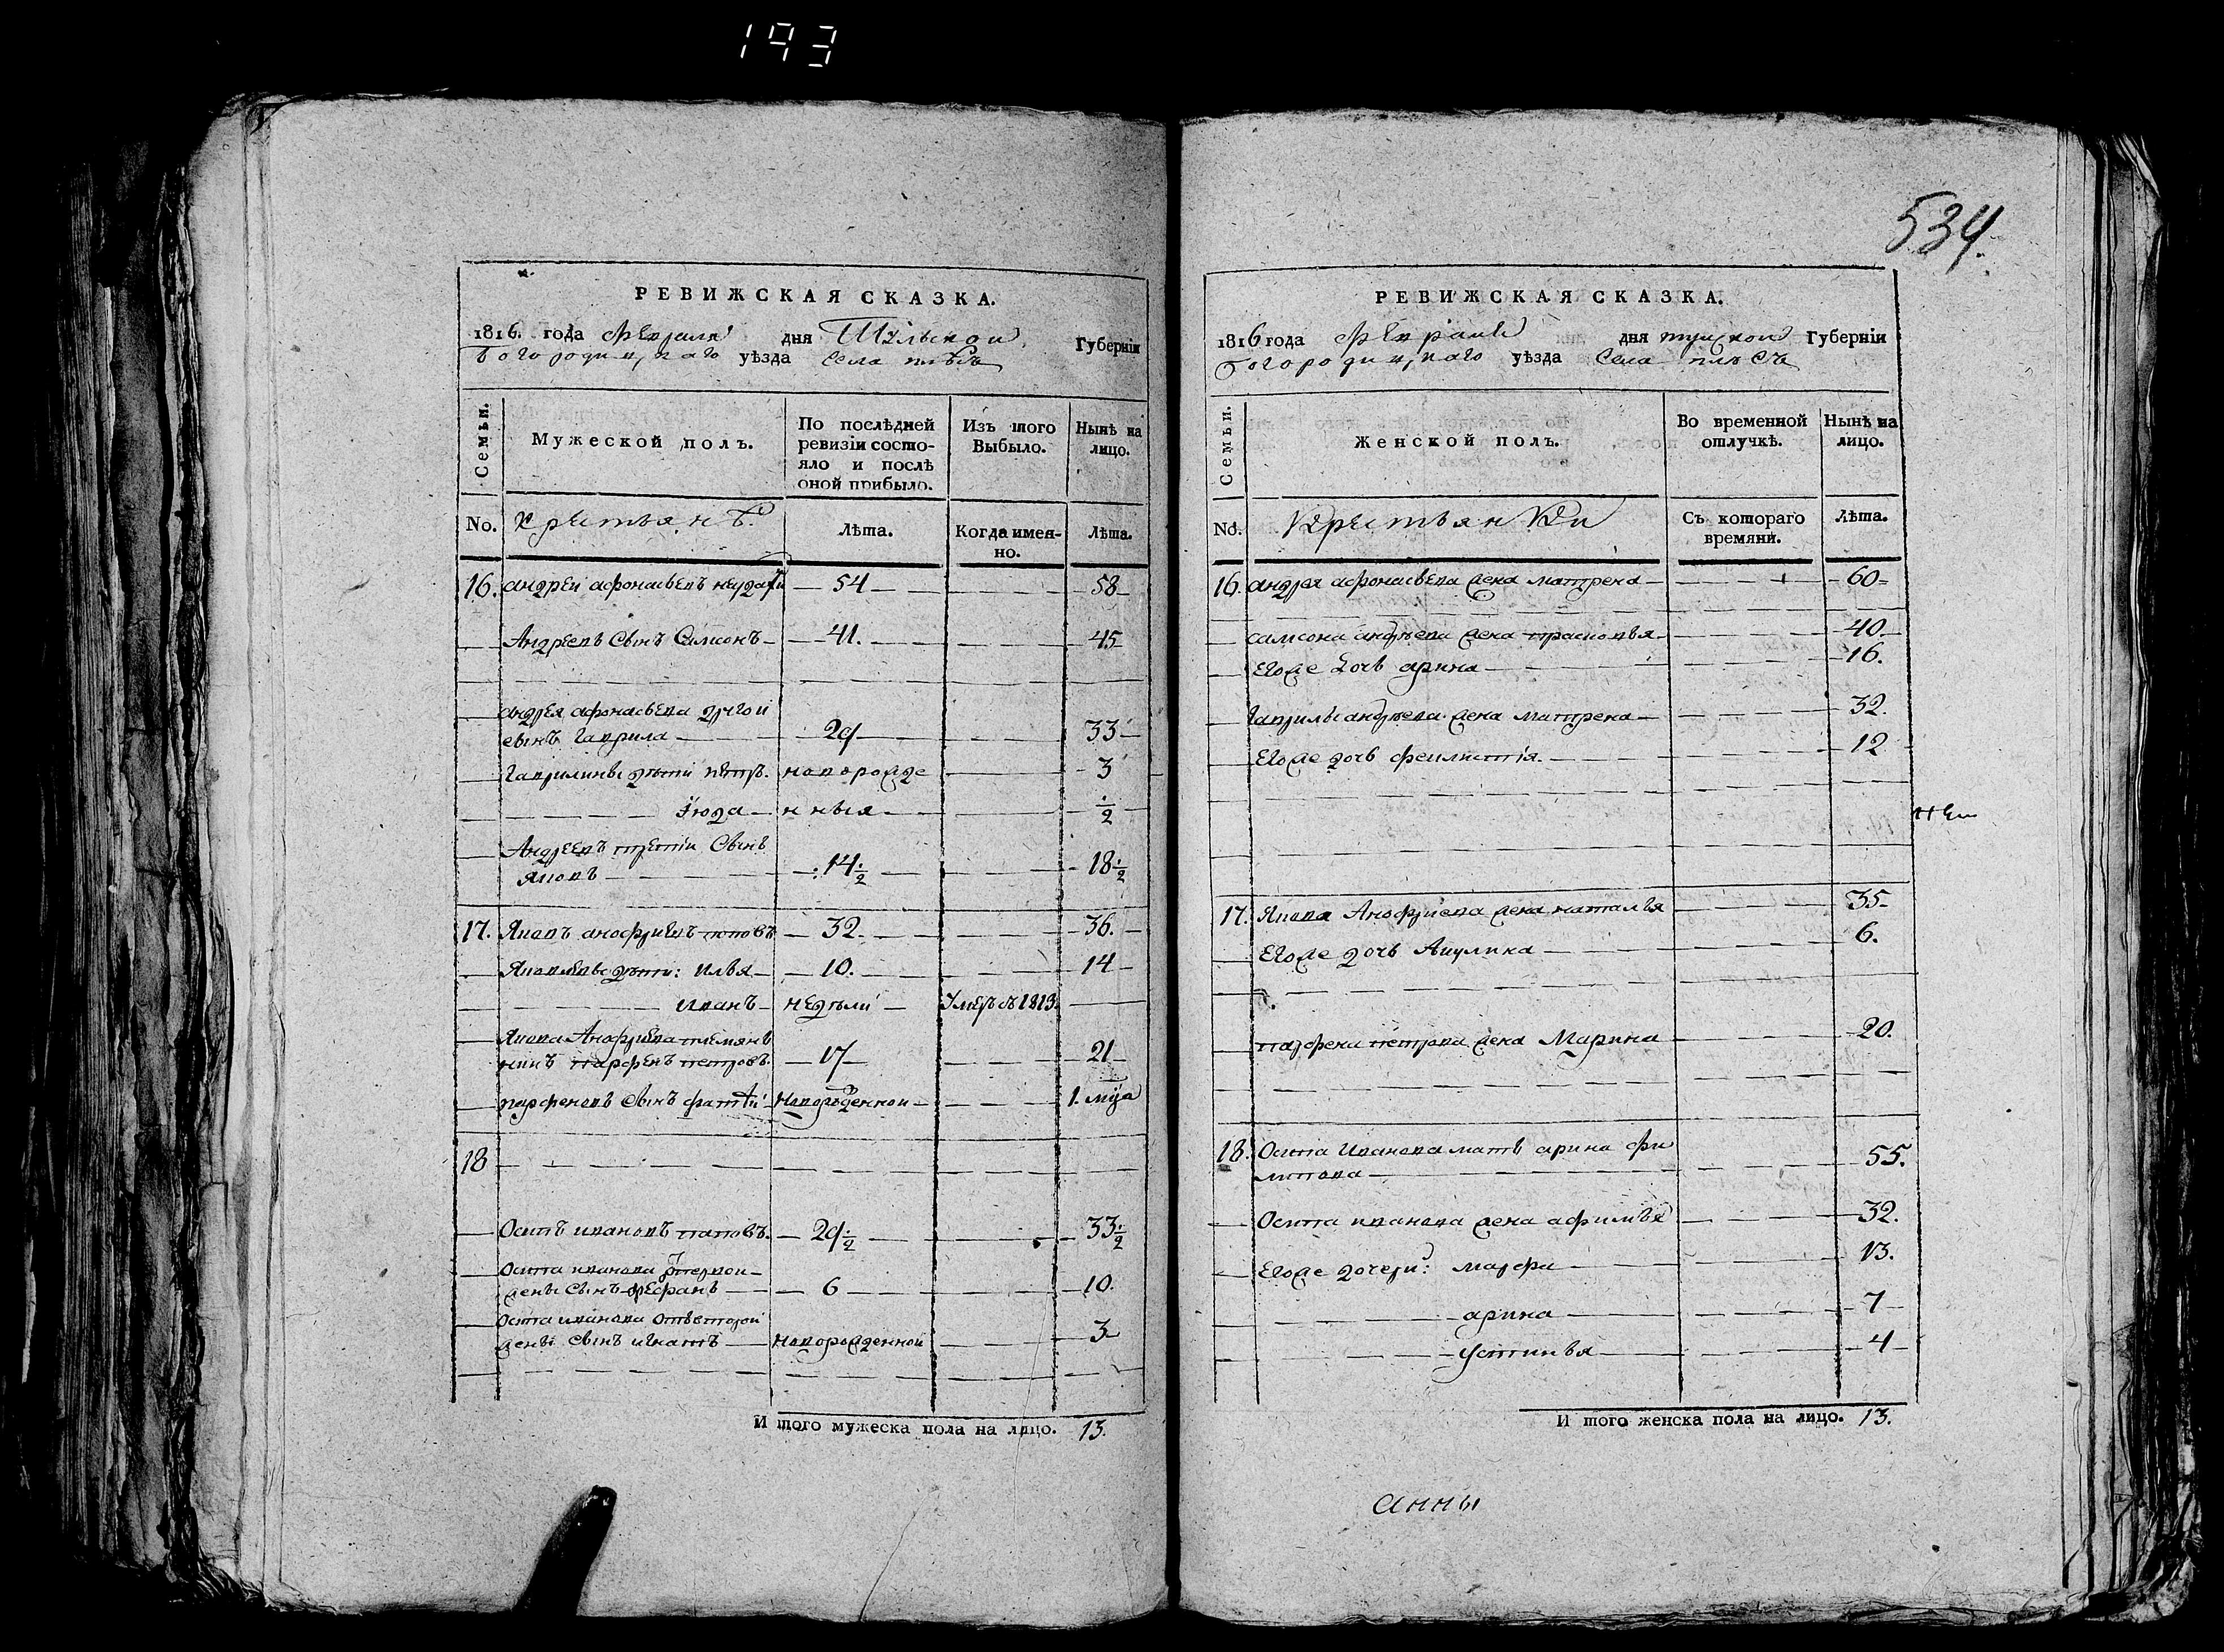 193
РЕВИЖСКАЯ СКАЗКА.
1816. года Февраля дня Тульской Губерніи
Богородицкаго уѣзда Села
Семьи.
Мужеской полъ.
По послѣдней ревизіи состояло и послѣ оной прибыло.
Изъ того Выбыло.
Нынѣ на лицо.
No.
Крестьянѣ.
Лѣта.
Когда имеяно.
Лѣта.
16. андреи афонасьевъ 54 58
Андреевъ Сынъ Самсонъ 41. 45
андрея афонасьева другои
сынъ Гаврила 29 33
Гавриловы дѣти петръ. новорожде 3
Июда нныя ½
Андреевъ третіи Сынъ
Яковъ 14½ 18½
17. Яковъ анофриевъ поповъ 32. 36.
Яковлевы дѣти: Илья 10. 14
иванъ недѣли Умеръ въ 1813.
Якова Анофриева племянъ
никъ парфенъ петровъ. 17 21
парфеновъ Сынъ фатѣи Новорожденнои 1. мца
18
Осипъ ивановъ поповъ. 29½ 33½
Осипа иванова отпервои
жены Сынъ 6 10.
Осипа иванова отвторои
жены Сынъ игнатъ новорожденнои 3
И того мужеска пола на лицо. 13.
534.
РЕВИЖСКАЯ СКАЗКА.
1816 года Февраля дня тулскои Губерніи
богородицкаго уѣзда Села
Семьи.
Женской полъ.
Во временной отлучкѣ.
Нынѣ на лицо.
No.
Крестьянки
Съ котораго времяни.
Лѣта.
16. андрея афонасьева жена матрена 60
самсона андрѣева жена прасковья 40
Егоже дочь арина 16.
Гаврилы андрѣева жена матрена 32.
Егоже дочь феклистія. 12
17. Якова Анофриева жена наталья 35
Егоже дочь Акулина 6.
парфена петрова жена Марина 20.
18. Осипа Иванова мать арина фи
липова 55.
Осипа иванова жена афимья 32.
Егоже дочери: марфа 13.
арина 7
устинья 4
И того женска пола на лицо. 13.
анны